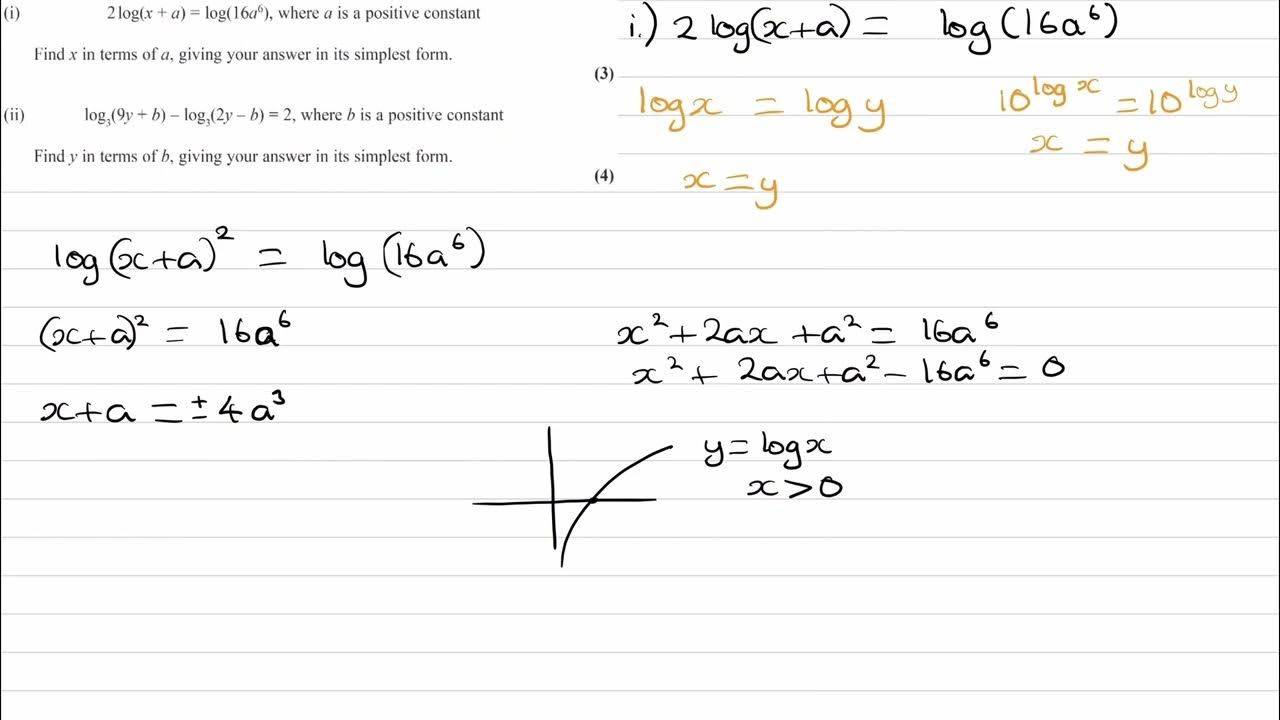 (i) 2 log(x + a) = log(16a⁶), where a is a positive constant
Find x in terms of a, giving your answer in its simplest form.
(3)
(ii) log₃(9y + b) – log₃(2y – b) = 2, where b is a positive constant
Find y in terms of b, giving your answer in its simplest form.
(4)
i.) 2 log(x+a) = log(16a⁶)
log x = log y
x = y
10^(log x) = 10^(log y)
x = y
log(x+a)² = log(16a⁶)
(x+a)² = 16a⁶
x+a = ±4a³
x² + 2ax + a² = 16a⁶
x² + 2ax + a² – 16a⁶ = 0
y = log x
x > 0